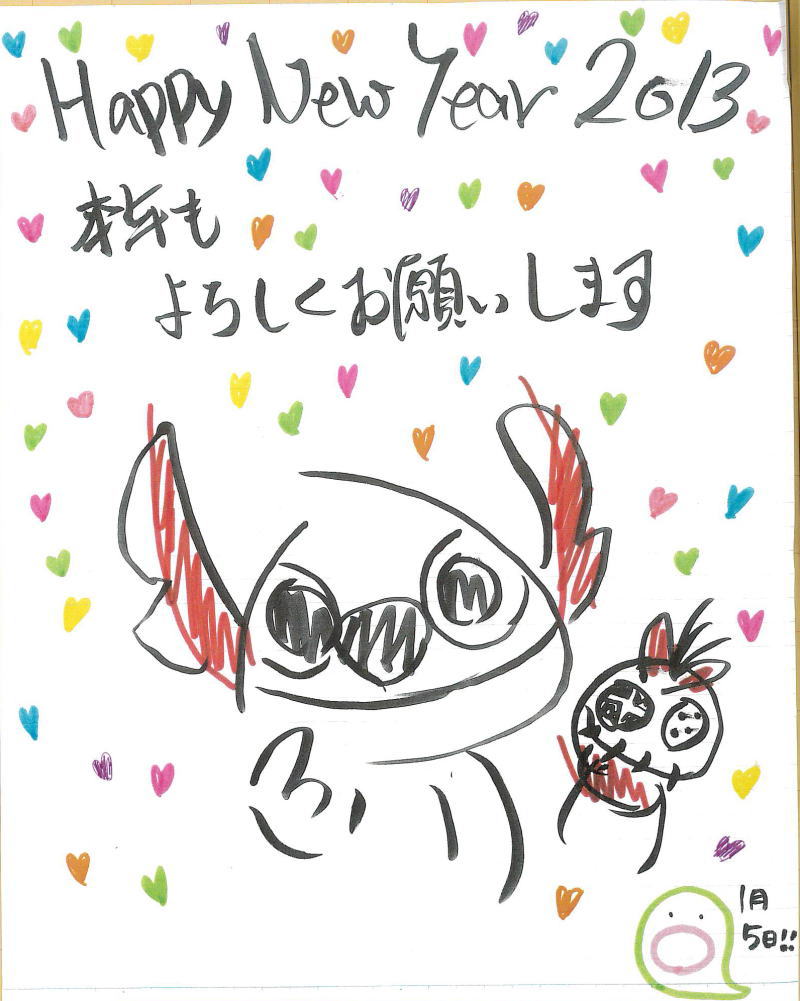 Happy New Year 2013
本年も
よろしくお願いします
1月
5日!!